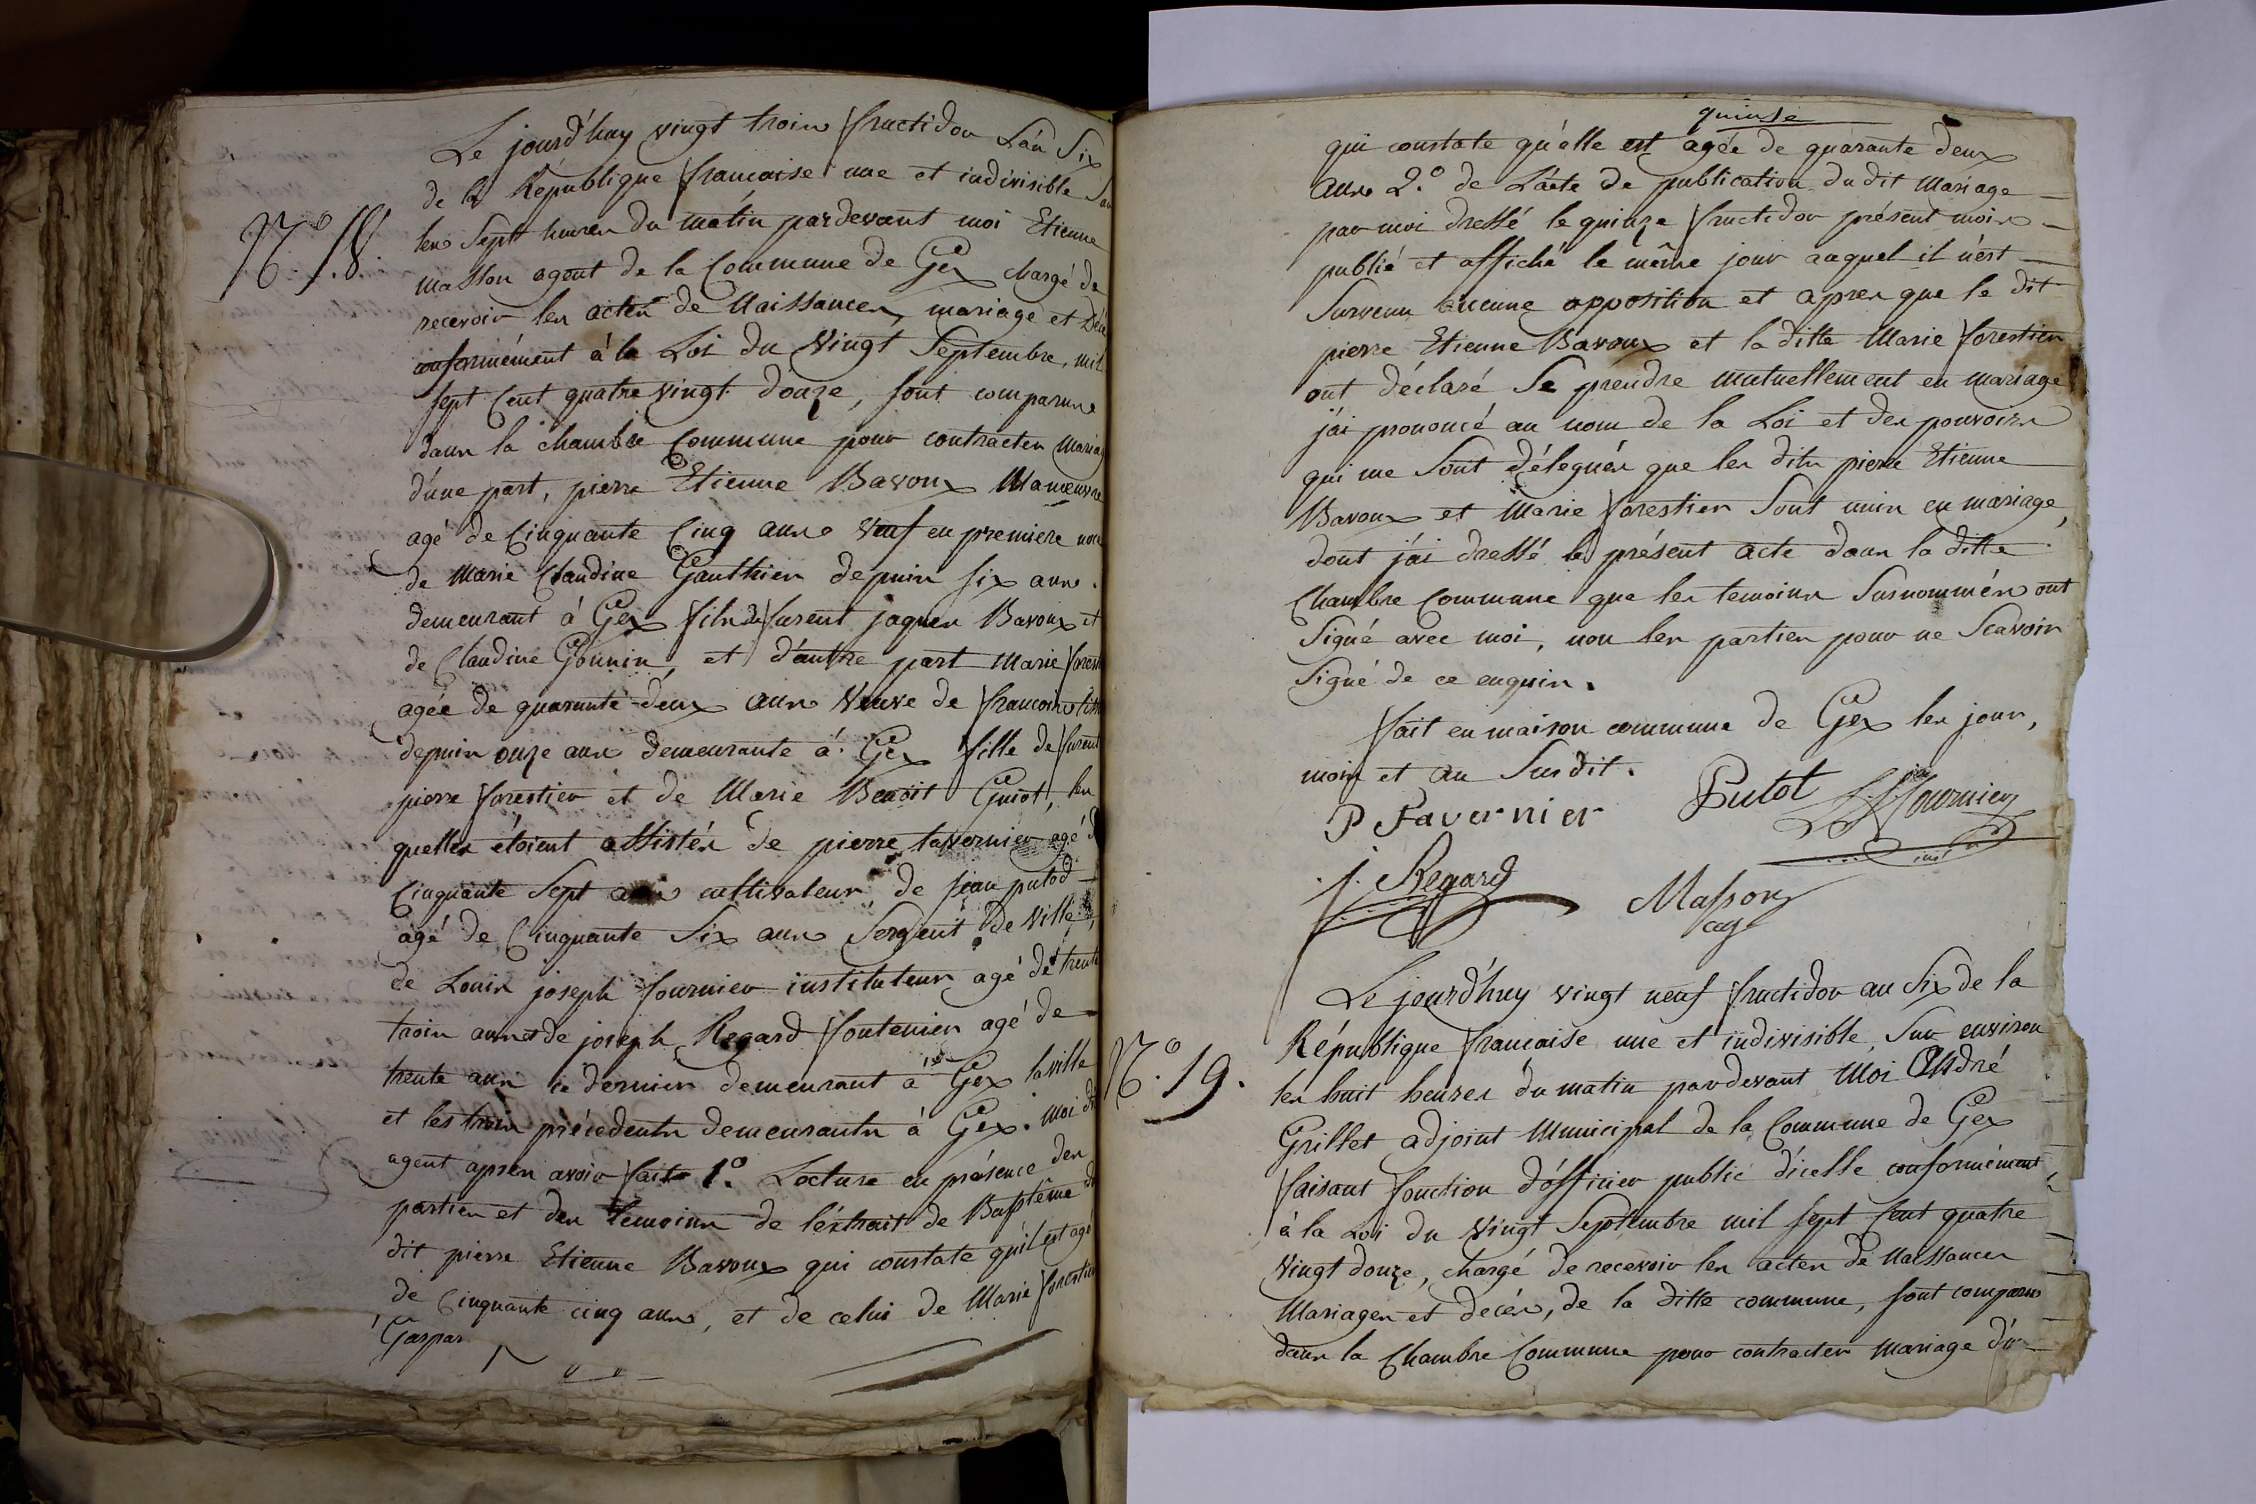 Le jourd'huy vingt trois fructidor L'an Six
de la République française une et indivisible Sur
les Sept heures du matin pardevant moi Etienne
N.° 18.
masson agent de la Commune de Gex chargé de
recevoir les actes de Naissances, mariage et Décé
conformément à la Loi du Vingt Septembre, mil
sept Cent quatre vingt douze, sont comparus
dans la chambre Commune pour contracter Mariag
d'une part, pierre Etienne Bavoux Manœuvre
agé de Cinquante Cinq ans Veuf en premiere noce
de Marie Claudine Gauthier depuis six ans.
demeurant à Gex fils de furent jaques Bavoux et
de Claudine Gounin, et d'autre part Marie forest
agée de quarante-deux ans Veuve de francois
depuis onze ans demeurante à Gex fille de furent
pierre forestier et de Marie Benoit Guiot, les
quelles étoient assistés de pierre tavernier agé d
Cinquante Sept ans cultivateur, de jean putod
agé de Cinquante Six ans Sergent de Ville,
de Louis joseph fournier instituteur agé de trente
trois ans et de joseph Regard fontenier agé de
trente ans ce dernier demeurant à Gex la ville
et les trois précédents demeurants à Gex. moi dt
agent apres avoir fait 1.° Lecture en présence des
parties et des temoins de l'extrait de Baptême du
dit pierre Etienne Bavoux qui constate qu'il est agé
de Cinquante cinq ans, et de celui de Marie forestier
Gaspar
quinse
qui constate qu'elle est agée de quarante deux
ans 2.° de L'acte de publication du dit Mariage
par moi dressé le quinze fructidor présent mois
publié et affiché le même jour auquel il n'est
Survenu aucune opposition et apres que le dit
pierre Etienne Bavoux et la ditte Marie forestier
ont déclaré Se prendre mutuellement en mariage
j'ai prononcé au nom de la Loi et des pouvoirs
qui me Sont délegués que les dits pierre Etienne
Bavoux et Marie forestier Sont unis en mariage,
dont j'ai dressé le présent acte dans la ditte
Chambre Commune que les temoins Susnommés ont
Signé avec moi, non les parties pour ne Scavoir
Signé de ce enquis.
fait en maison commune de Gex les jour,
mois et an Susdit.
P Tavernier Putot L. J. fournier
inst
j. Regard Masson
ag
Le jourd'huy vingt neuf fructidor an Six de la
République francaise une et indivisible, Sur environ
N.° 19.
les huit heures du matin pardevant Moi André
Grillet adjoint Municipal de la Commune de Gex
faisant fonction d'officier public d'icelle conformément
à la Loi du Vingt Septembre mil sept Cent quatre
Vingt douze, chargé de recevoir les actes de Naissances
Mariages et decés, de la ditte commune, sont comparus
dans la Chambre Commune pour contracter Mariage d'u